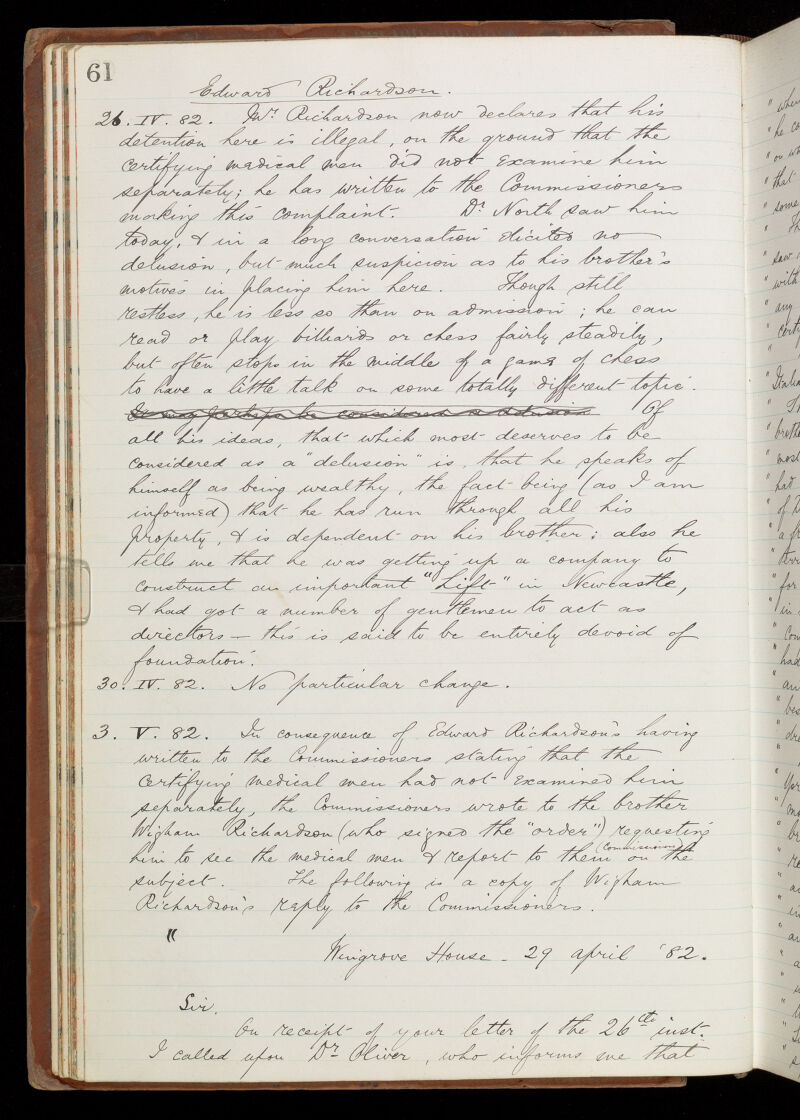 61
Edward Richardson.
26. IV. 82. Mr. Richardson now declares that his
detention here is illegal, on the ground that the
certifying medical men did not examine him
separately; he has written to the Commissioners
making this complaint. Dr. North saw him
today, & in a long conversation elicited no
delusion, but much suspicion as to his brother's
motives in placing him here. Though still
restless, he is less so than on admission; he can
read or play billiards or chess fairly steadily,
but often stops in the middle of a game of chess
to have a little talk on some totally different topic.
Of
all his ideas, that which most deserves to be
considered as a "delusion" is, that he speaks of
himself as being wealthy, the fact being (as I am
informed) that he has run through all his
property, & is dependent on his brother; also he
tells me that he was getting up a company to
construct an important "Lift" in Newcastle,
& had got a number of gentlemen to act as
directors — this is said to be entirely devoid of
foundation.
30. IV. 82. No particular change.
3. V. 82. In consequence of Edward Richardson's having
written to the Commissioners stating that the
certifying medical men had not examined him
separately, the Commissioners wrote to the brother
Wigham Richardson (who signed the "order") requesting
him to see the medical men & report to them (Commissioners) on the
subject. The following is a copy of Wigham
Richardson's reply to the Commissioners.
"
Wingrove House - 29 April '82.
Sir,
On receipt of your letter of the 26th inst.
I called upon Dr. Oliver, who informs me that